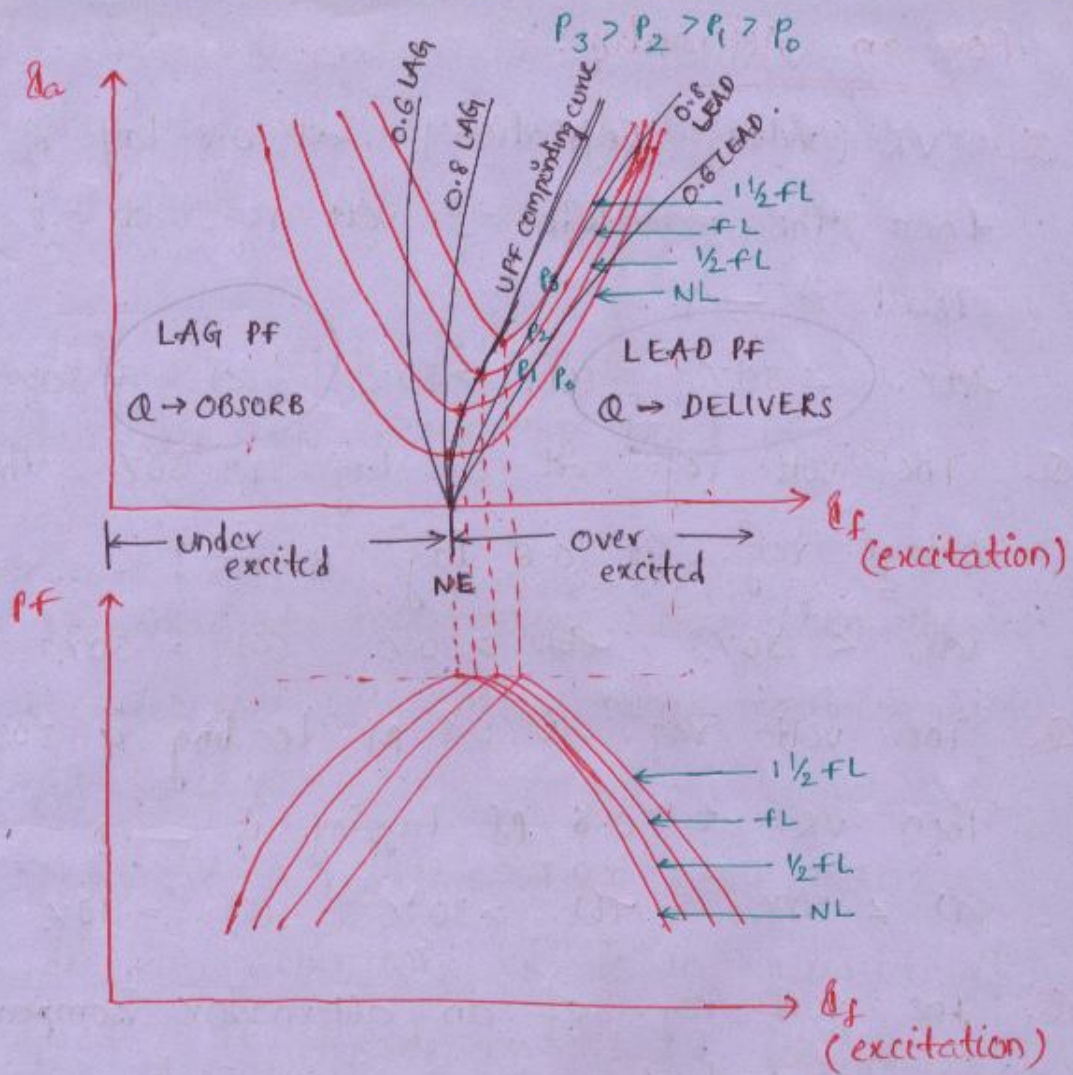 P3 > P2 > P1 > P0
Ia
0.6 LAG
0.8 LAG
UPF compounding curve
0.8 LEAD
0.6 LEAD
1 1/2 FL
FL
1/2 FL
NL
P3
P2
P1
P0
LAG PF
Q → OBSORB
LEAD PF
Q → DELIVERS
If
(excitation)
under
excited
NE
over
excited
PF
1 1/2 FL
FL
1/2 FL
NL
If
(excitation)